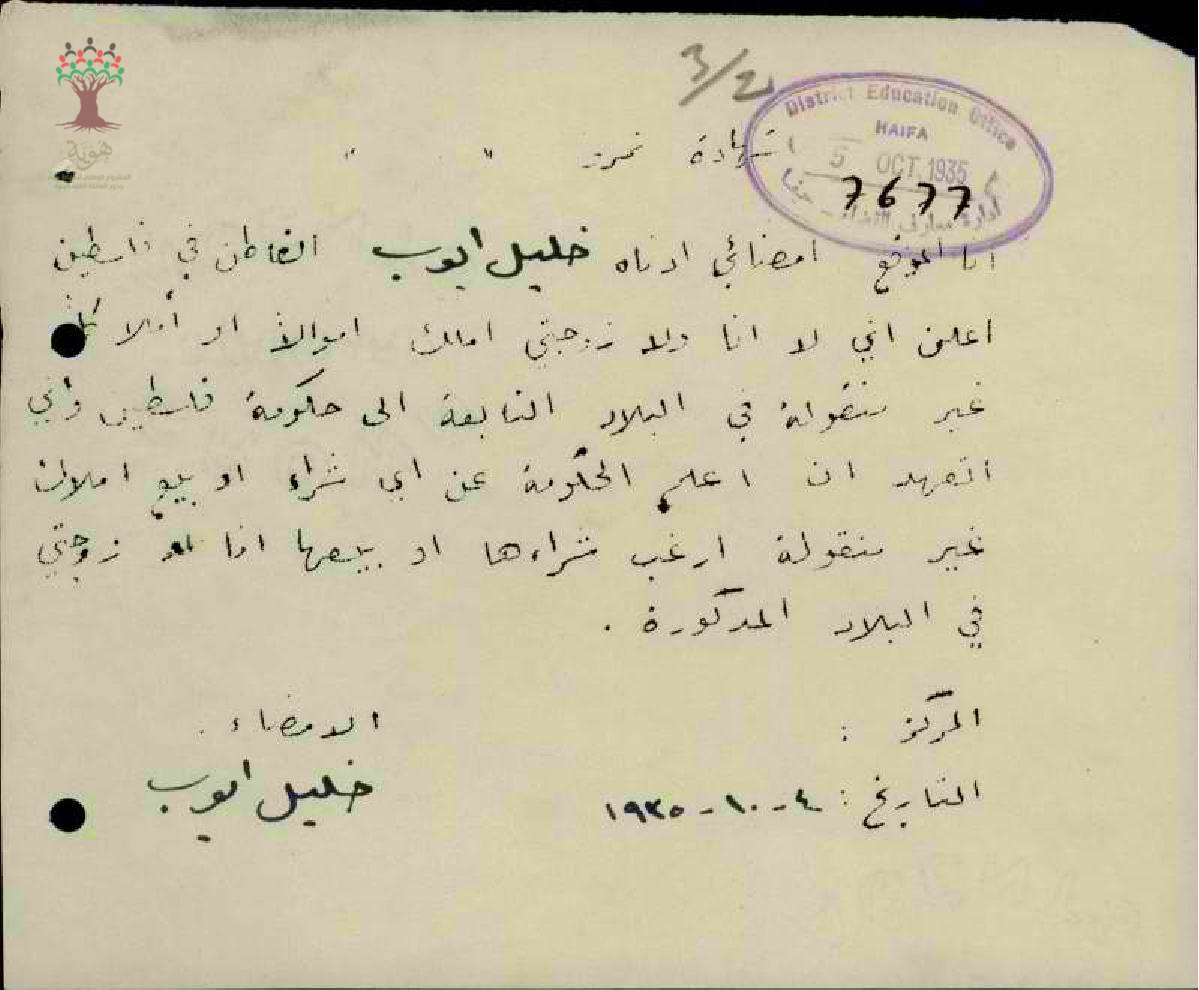 3/2
District Education Office
HAIFA
5 OCT. 1935
7677
ادارة معارف القضاء - حيفا
هوية
شهادة نمرة " "
انا الموقع امضائي ادناه خليل ايوب القاطن في فلسطين
اعلن اني لا انا ولا زوجتي املك اموالاً او أملاكاً
غير منقولة في البلاد التابعة الى حكومة فلسطين وأني
اتعهد ان اعلم الحكومة عن اي شراء او بيع املاك
غير منقولة ارغب شراءها او بيعها انا او زوجتي
في البلاد المذكورة .
المركز : الامضاء .
التاريخ : ٤-١٠-١٩٣٥ خليل ايوب